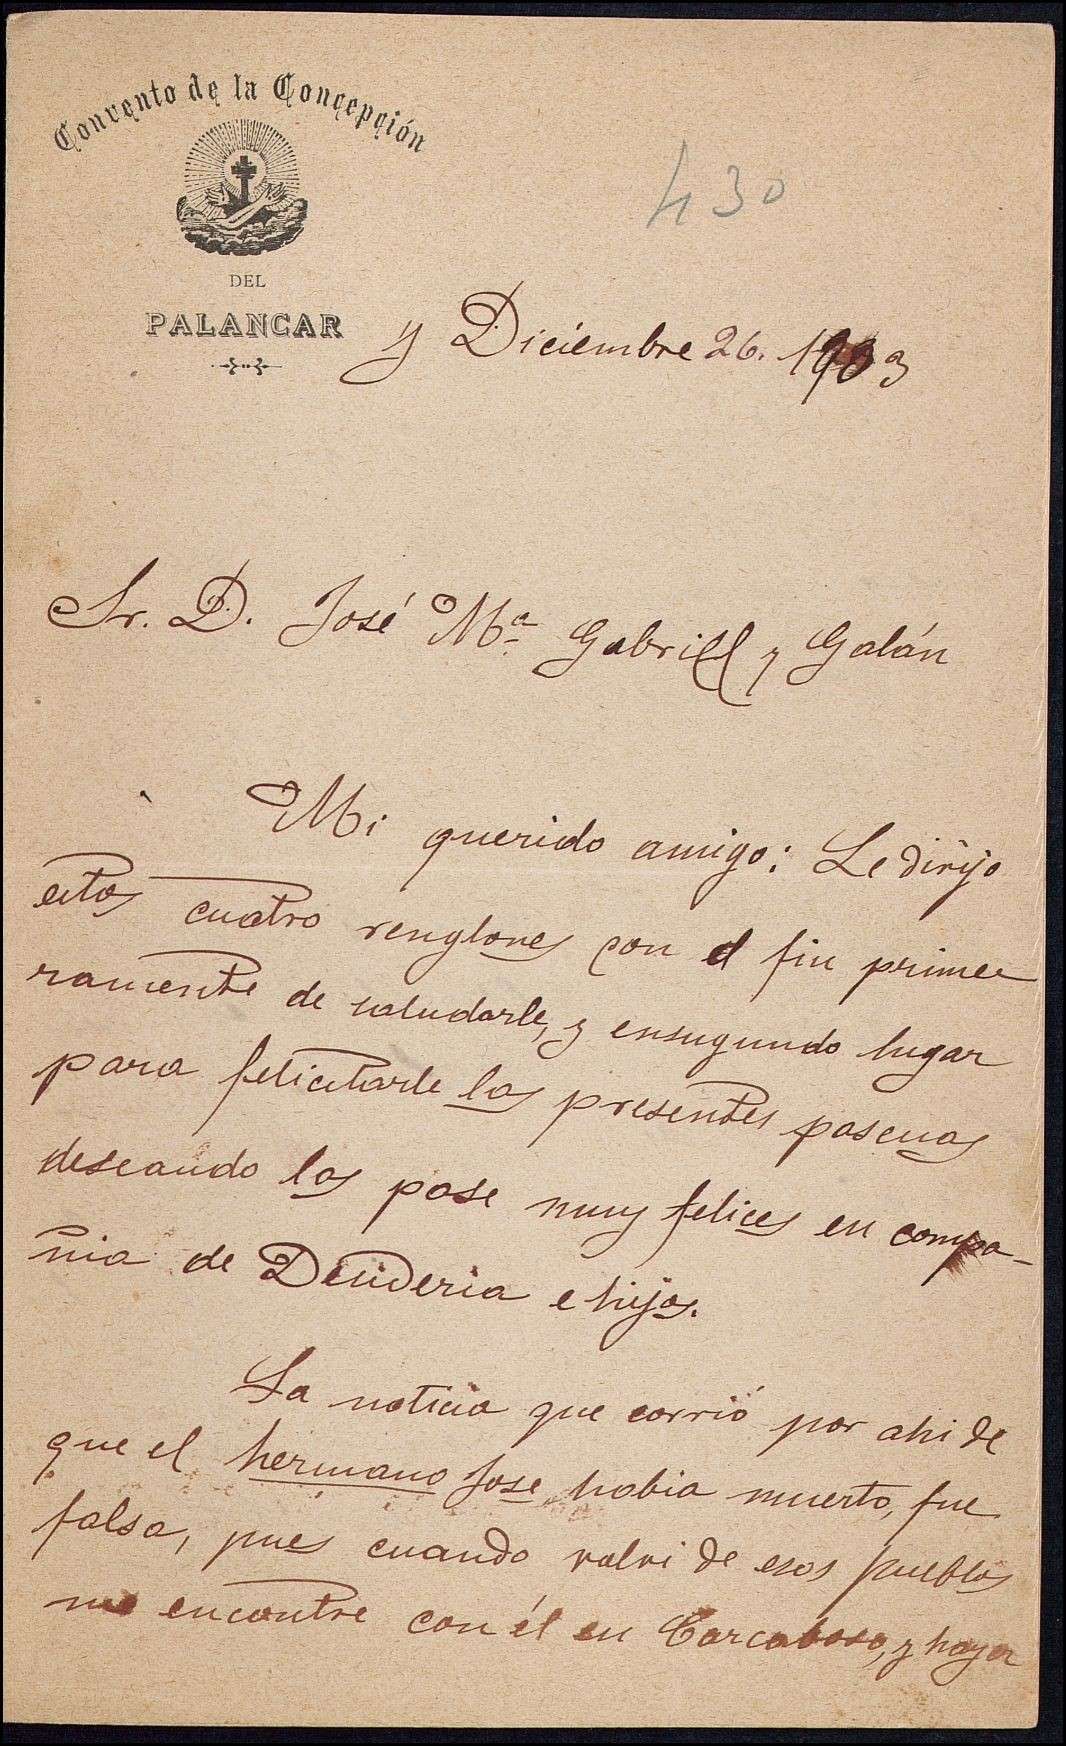 Convento de la Concepción
DEL
PALANCAR
430
y Diciembre 26. 1903
Sr. D. José Mª Gabriel y Galán
Mi querido amigo: Le dirijo
estos cuatro renglones con el fin prime
ramente de saludarle, y ensegundo lugar
para felicitarle las presentes pascuas
deseando las pase muy felices en compa-
nia de Desideria e hijos.
La noticia que corrió por ahi de
que el hermano Jose habia muerto, fue
falsa, pues cuando volvi de esos pueblos
me encontre con él en Carcaboso, y hoya